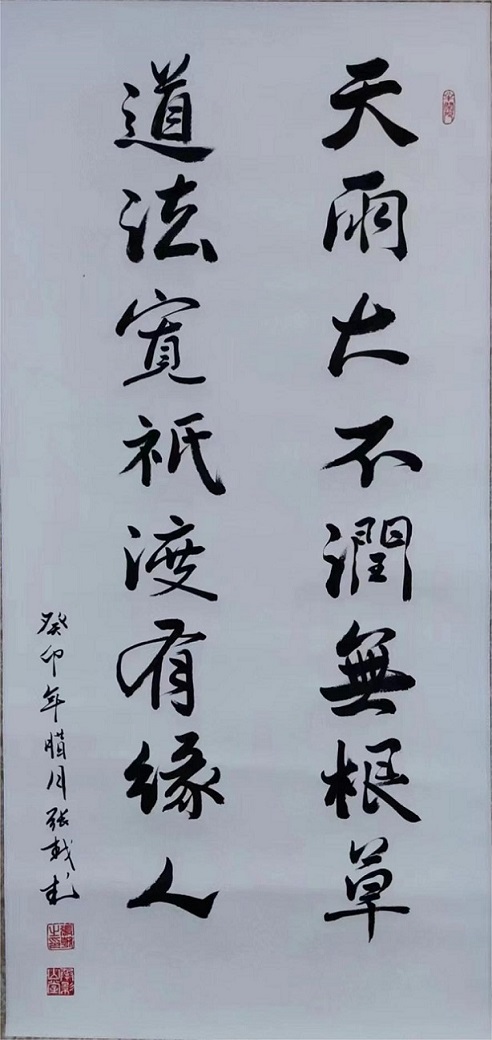 天雨大不潤無根草
道法寬祇渡有緣人
癸卯年腊月張